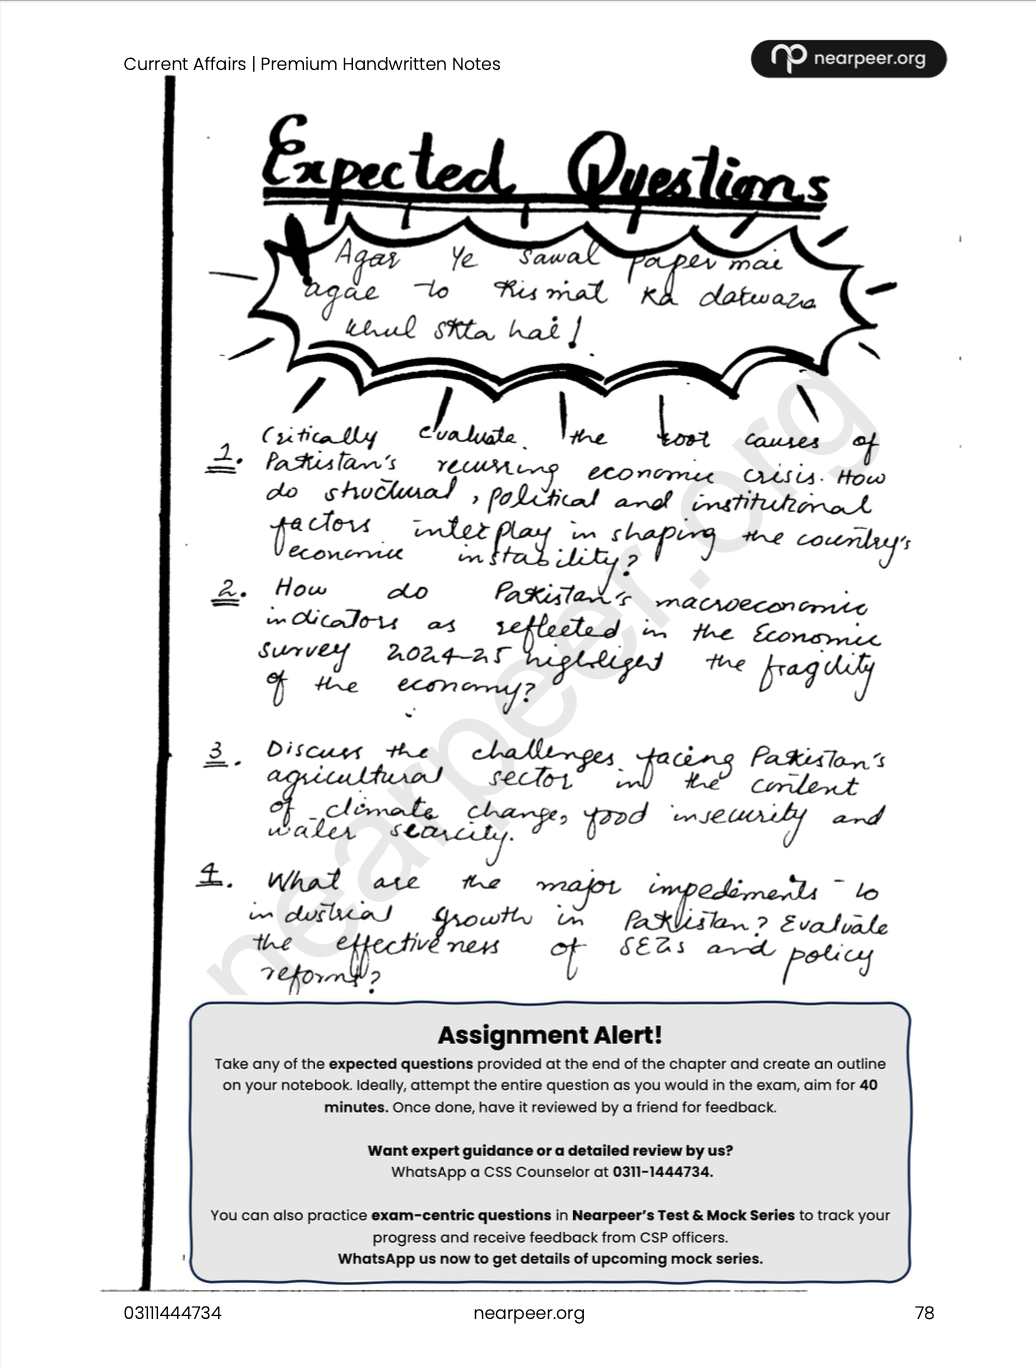 Current Affairs | Premium Handwritten Notes
nearpeer.org
Expected Questions
Agar Ye sawal paper mai
agae to Kismat Ka darwaza
khul skta hai!
1. Critically evaluate the root causes of
Pakistan's recurring economic crisis. How
do structural, political and institutional
factors interplay in shaping the country's
economic instability?
2. How do Pakistan's macroeconomic
indicators as reflected in the Economic
survey 2024-25 highlight the fragility
of the economy?
3. Discuss the challenges facing Pakistan's
agricultural sector in the content
of climate change, food insecurity and
water scarcity.
4. What are the major impediments to
industrial growth in Pakistan? Evaluate
the effectiveness of SEZs and policy
reforms?
nearpeer.org
Assignment Alert!
Take any of the expected questions provided at the end of the chapter and create an outline
on your notebook. Ideally, attempt the entire question as you would in the exam, aim for 40
minutes. Once done, have it reviewed by a friend for feedback.
Want expert guidance or a detailed review by us?
WhatsApp a CSS Counselor at 0311-1444734.
You can also practice exam-centric questions in Nearpeer's Test & Mock Series to track your
progress and receive feedback from CSP officers.
WhatsApp us now to get details of upcoming mock series.
03111444734
nearpeer.org
78